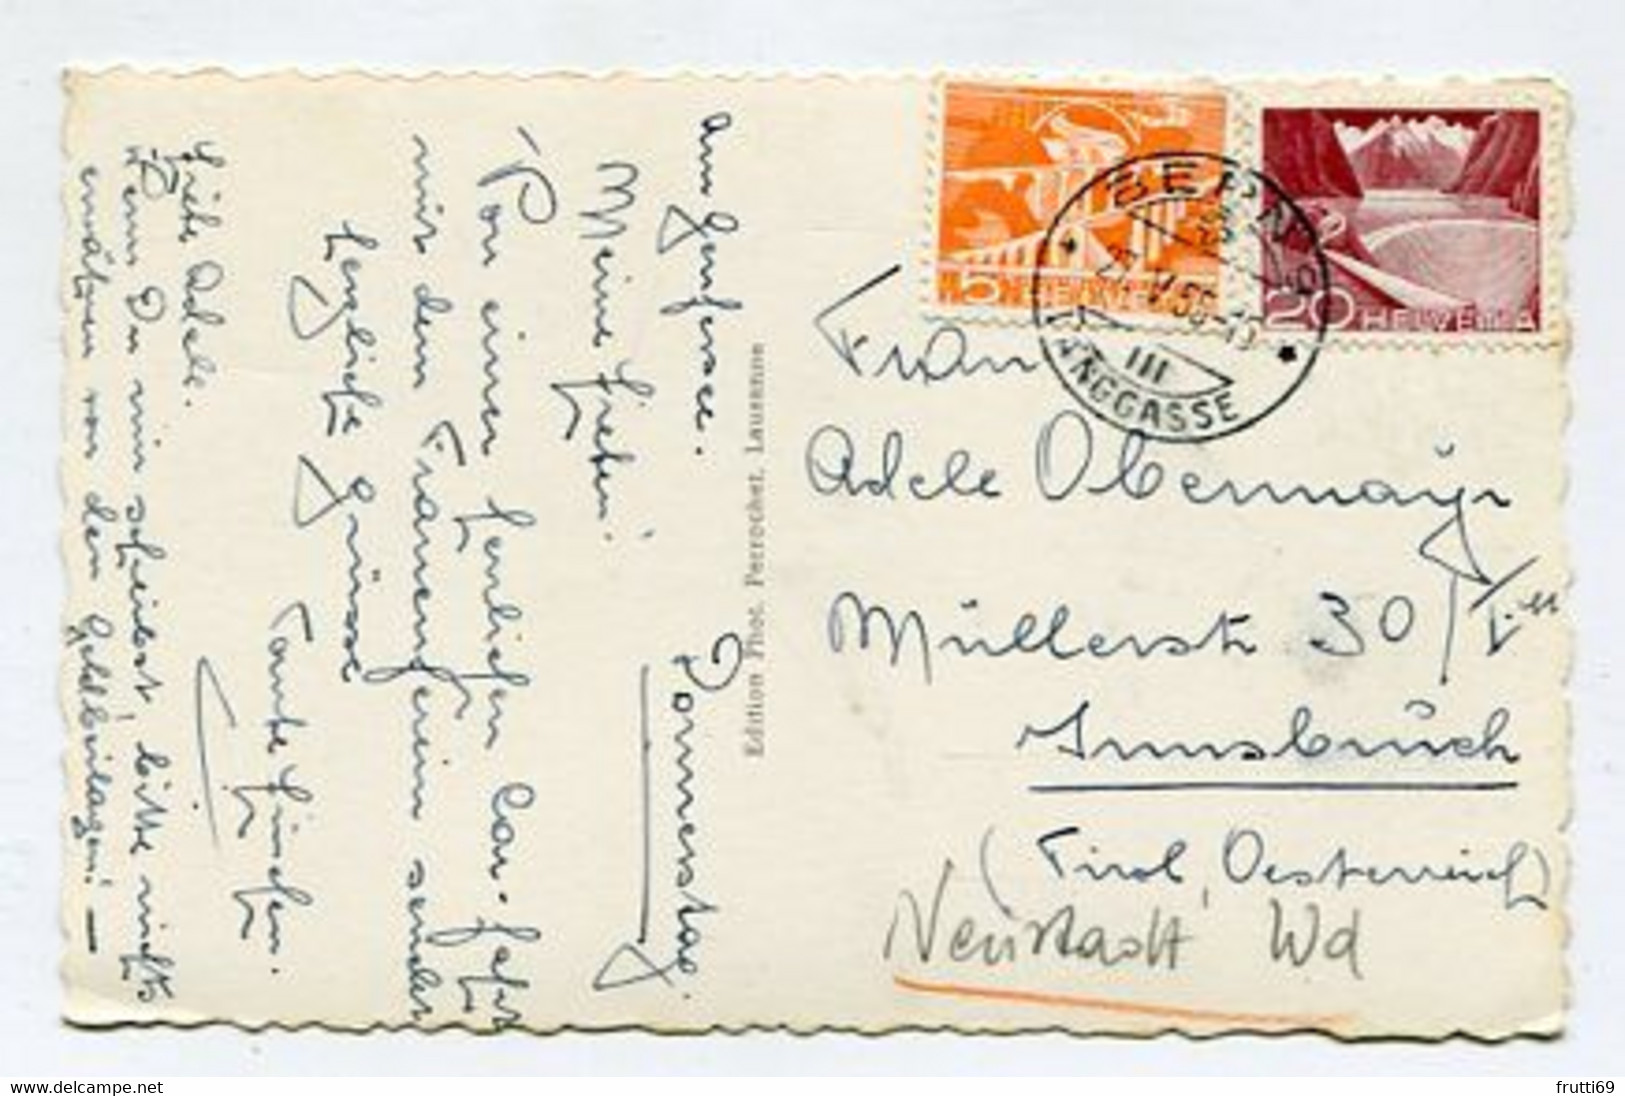 Am Genfersee.
Donnerstag.
Meine Lieben!
Von einer herrlichen Car-fahrt
mit dem Frauenverein senden
herzliche Grüsse
Tante
Liebe Adele.
Wenn Du mir schreibst, bitte nichts
erwähnen von den Geldbeilagen! —
Edition Phot. Perrochet, Lausanne
5 HELVETIA
20 HELVETIA
BERN
LÄNGGASSE
III
Frau
Adele Obermayr
Müllerstr 30/I.
Innsbrück
(Tirol, Oesterreich)
Neustadt Wd
frutti69